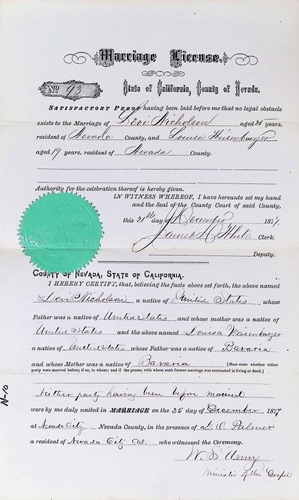 Marriage License.
No 93
State of California, County of Nevada.
SATISFACTORY PROOF having been laid before me that no legal obstacle
exists to the Marriage of Levi Nicholson aged 25 years,
resident of Nevada County, and Louisa
aged 19 years, resident of Nevada County.
Authority for the celebration thereof is hereby given.
IN WITNESS WHEREOF, I have hereunto set my hand
and the Seal of the County Court of said County,
this 21st day of December 1877
James D White Clerk.
Deputy.
COUNTY OF NEVADA, STATE OF CALIFORNIA.
I HEREBY CERTIFY, that, believing the facts above set forth, the above named
Levi Nicholson a native of United States, whose
Father was a native of United States and whose mother was a native of
United States and the above named Louisa
a native of United States whose Father was a native of Bavaria
and whose Mother was a native of Bavaria [Here state whether either
party were married before; if so, to whom; and if the person with whom such former marriage was contracted is living or dead.]
Neither party having been before married
were by me duly united in MARRIAGE on the 25 day of December 1877
Nevada City Nevada County, in the presence of L. O. Palmer
a resident of Nevada City Cal who witnessed the Ceremony.
Minister of the Gospel